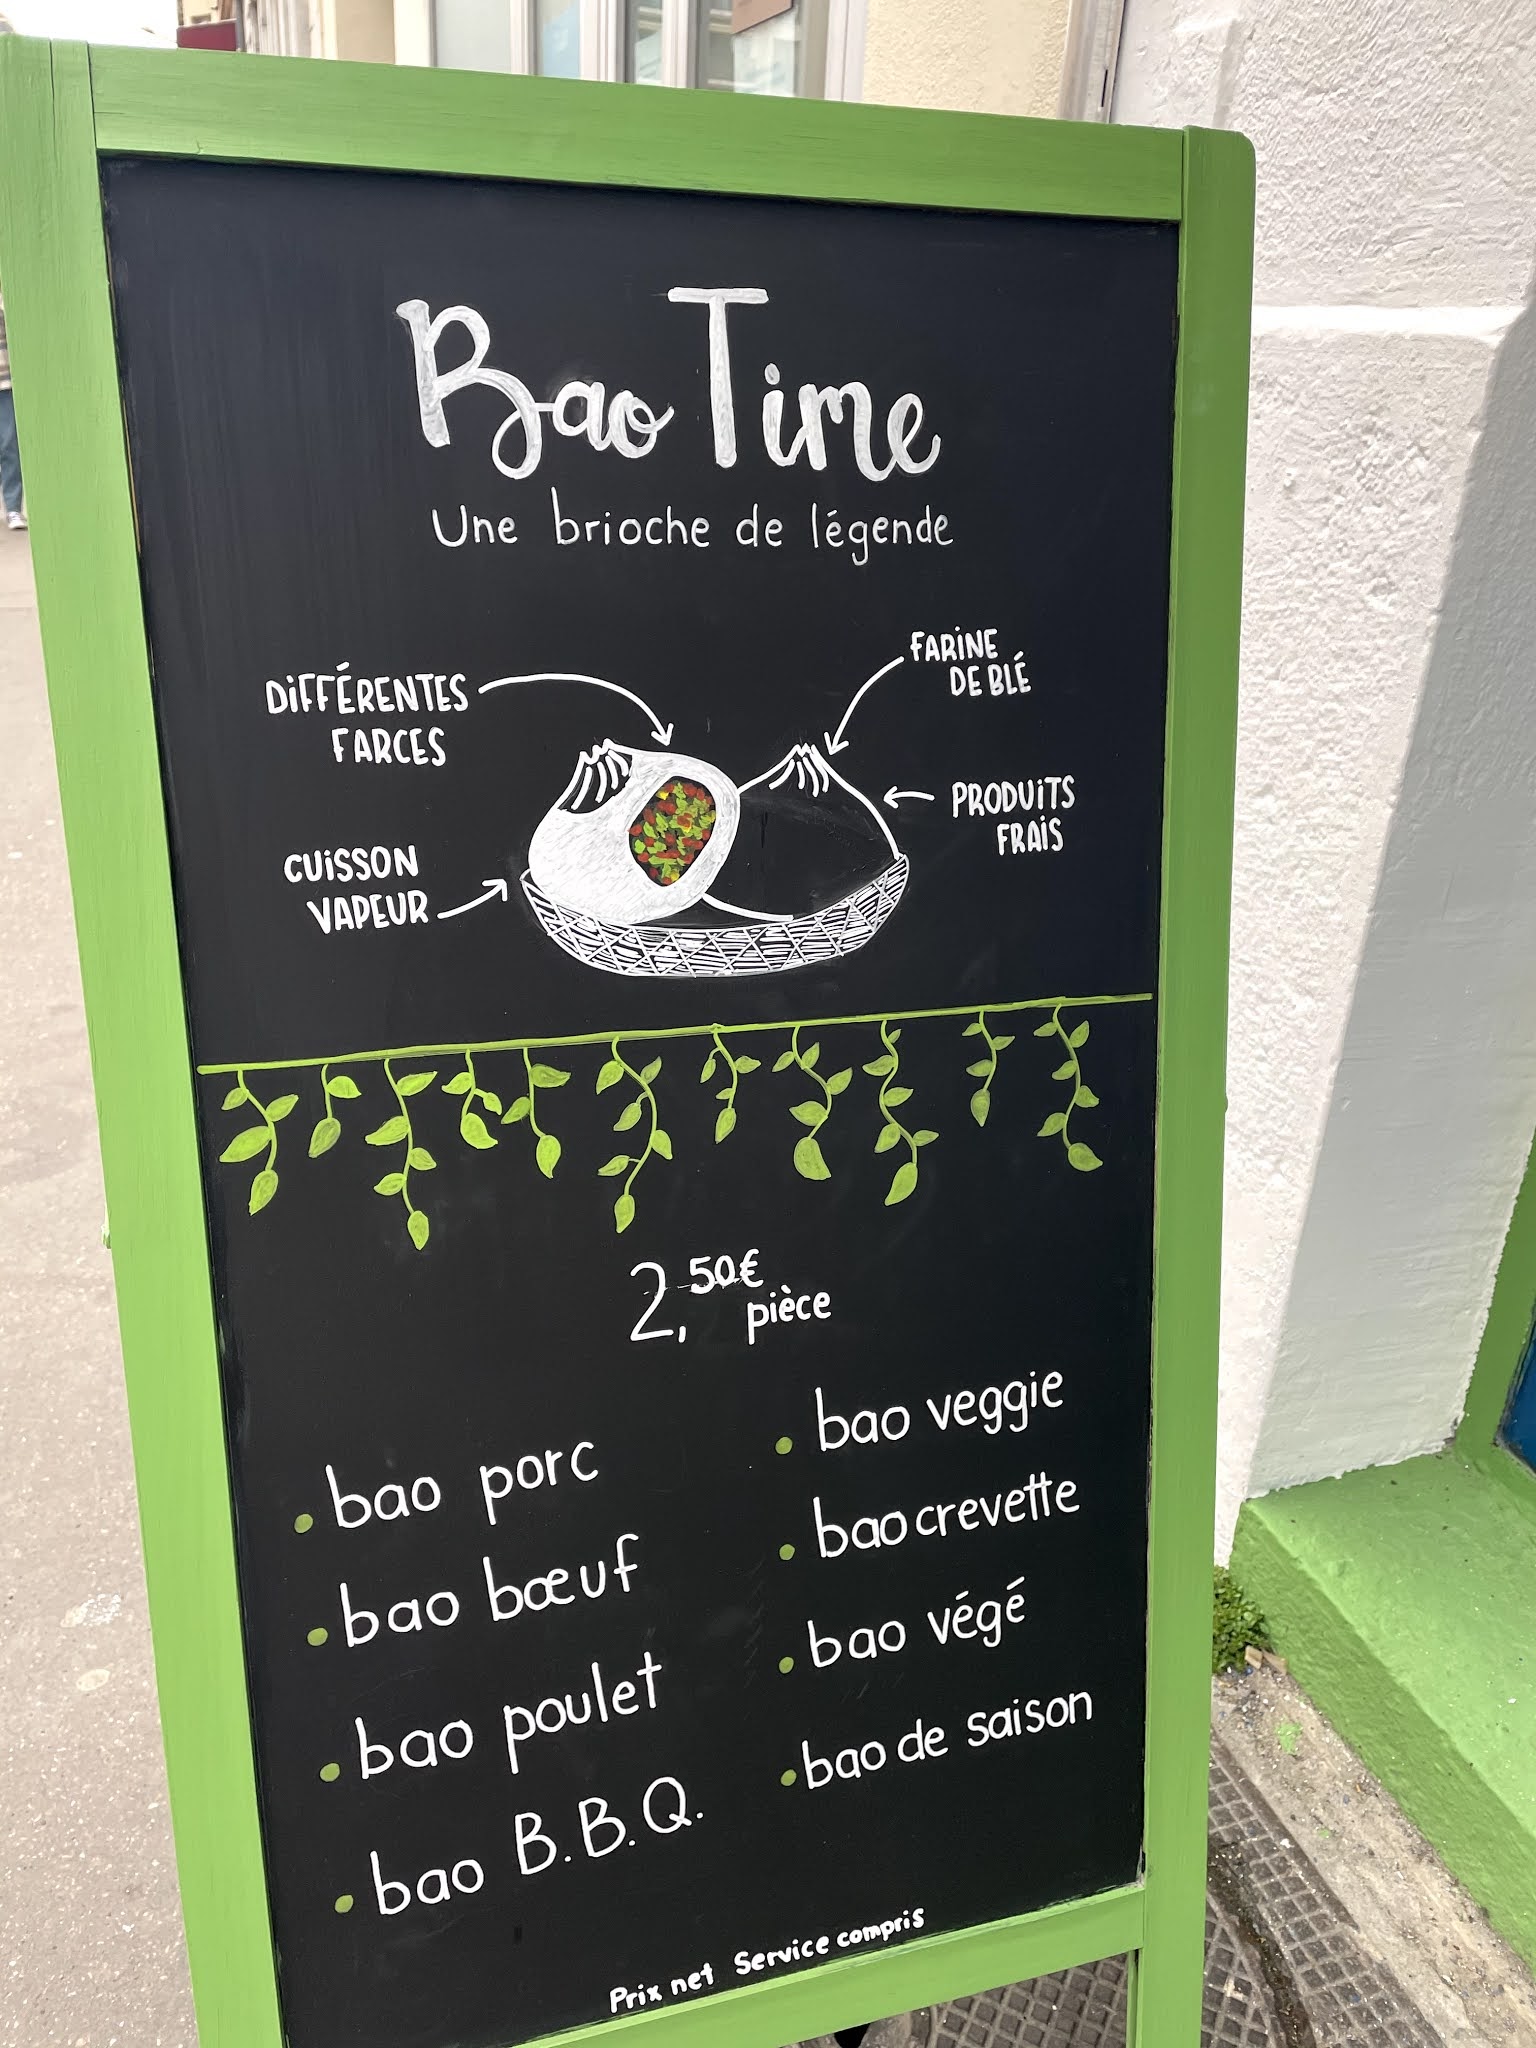 Bao Time
Une brioche de légende
DIFFÉRENTES
FARCES
FARINE
DE BLÉ
PRODUITS
FRAIS
CUISSON
VAPEUR
2,50€
pièce
• bao porc
• bao bœuf
• bao poulet
• bao B.B.Q.
• bao veggie
• bao crevette
• bao végé
• bao de saison
Prix net Service compris